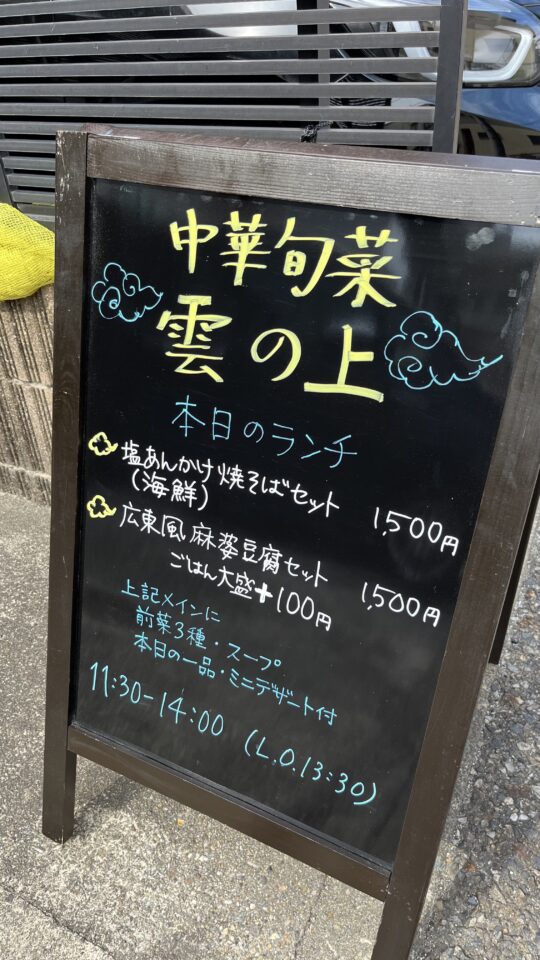 中華旬菜
雲の上
本日のランチ
塩あんかけ焼そばセット 1,500円
(海鮮)
広東風麻婆豆腐セット 1,500円
ごはん大盛+100円
上記メインに
前菜3種・スープ
本日の一品・ミニデザート付
11:30-14:00 (L.O.13:30)